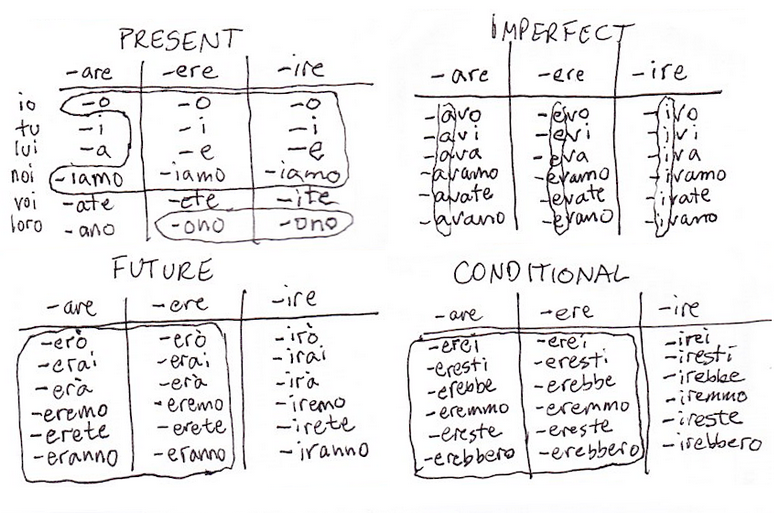 PRESENT
-are -ere -ire
io -o -o -o
tu -i -i -i
lui -a -e -e
noi -iamo -iamo -iamo
voi -ate -ete -ite
loro -ano -ono -ono
IMPERFECT
-are -ere -ire
-avo -evo -ivo
-avi -evi -ivi
-ava -eva -iva
-avamo -evamo -ivamo
-avate -evate -ivate
-avano -evano -ivano
FUTURE
-are -ere -ire
-erò -erò -irò
-erai -erai -irai
-erà -erà -irà
-eremo -eremo -iremo
-erete -erete -irete
-eranno -eranno -iranno
CONDITIONAL
-are -ere -ire
-erei -erei -irei
-eresti -eresti -iresti
-erebbe -erebbe -irebbe
-eremmo -eremmo -iremmo
-ereste -ereste -ireste
-erebbero -erebbero -irebbero